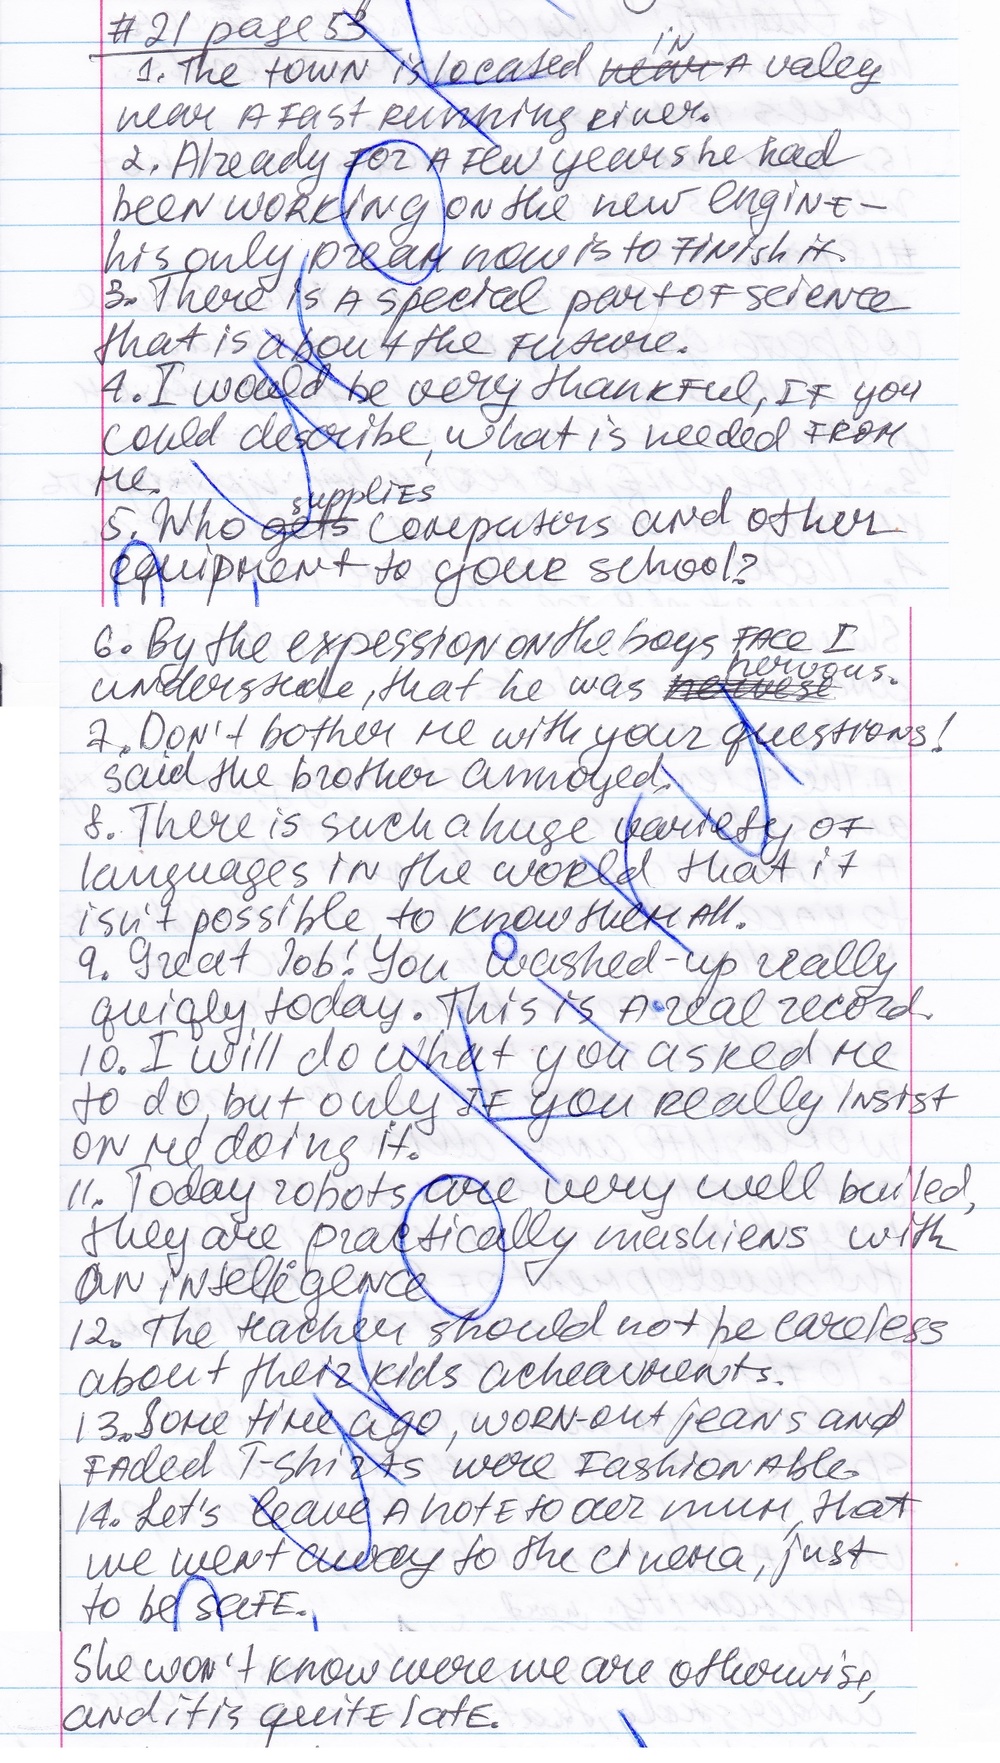 #21 page 53
1. The town is located in A valey
near A Fast running river.
2. Already FOR A Few years he had
been working on the new engine -
his only dream now is to Finish it.
3. There is A special part of science
that is about the Future.
4. I would be very thankFul, IF you
could describe, what is needed FROM
me.
5. Who supplies computers and other
equipment to your school?
6. By the expession on the boys FACE I
understude, that he was nervous.
7. Don't bother me with your questions!
said the brother annoyed.
8. There is such a huge variety of
languages in the world that it
isn't possible to know them All.
9. Great Job! You washed-up really
quiqly today. This is A real record.
10. I will do what you asked me
to do, but only IF you really insist
on me doing it.
11. Today robots are very well builed,
they are practically mashiens with
an intelligence
12. The teacher should not be careless
about their kids acheavments.
13. Some time ago, worn-out jeans and
Faded T-shirts were FashionAble.
14. Let's leave A note to our mum, that
we went away to the cinema, just
to be saFe.
She won't know were we are otherwise,
and it is quite late.